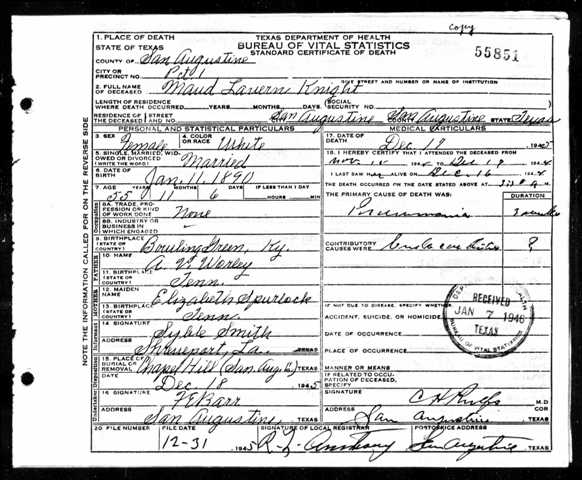 copy
TEXAS DEPARTMENT OF HEALTH
BUREAU OF VITAL STATISTICS
STANDARD CERTIFICATE OF DEATH
55851
1. PLACE OF DEATH
STATE OF TEXAS
COUNTY OF San Augustine
CITY OR PRECINCT NO. Pct 1
GIVE STREET AND NUMBER OR NAME OF INSTITUTION
2. FULL NAME OF DECEASED Maud Lavern Knight
LENGTH OF RESIDENCE WHERE DEATH OCCURRED YEARS MONTHS DAYS SOCIAL SECURITY NO.
RESIDENCE OF THE DECEASED STREET AND NO. San Augustine San Augustine STATE Texas
PERSONAL AND STATISTICAL PARTICULARS
3. SEX Female 4. COLOR OR RACE White
5. SINGLE, MARRIED, WIDOWED OR DIVORCED (WRITE THE WORD) Married
6. DATE OF BIRTH Jan. 11. 1890
7. AGE 55 11 6 HOURS MIN
8A. TRADE, PROFESSION OR KIND OF WORK DONE None
8B. INDUSTRY OR BUSINESS IN WHICH ENGAGED -
9. BIRTHPLACE (STATE OR COUNTRY) Bowling Green, Ky.
10. NAME A. V. Worley
11. BIRTHPLACE (STATE OR COUNTRY) Tenn.
12. MAIDEN NAME Elizabeth Spurlock
13. BIRTHPLACE (STATE OR COUNTRY) Tenn.
14. SIGNATURE Syble Smith
ADDRESS Shreveport, La. TEXAS
15. PLACE OF BURIAL OR REMOVAL Chapel Hill (San Aug.) TEXAS
DATE Dec. 18 1945
16. SIGNATURE
ADDRESS San Augustine, TEXAS
MEDICAL PARTICULARS
17. DATE OF DEATH Dec. 18 1945
18. I HEREBY CERTIFY THAT I ATTENDED THE DECEASED FROM
Nov. 194 Dec 194
I LAST SAW ALIVE ON Dec 16 194
THE DEATH OCCURRED ON THE DATE STATED ABOVE AT M.
THE PRIMARY CAUSE OF DEATH WAS: DURATION
Pneumonia
CONTRIBUTORY CAUSES WERE ?
RECEIVED
JAN 7 1946
TEXAS
BUREAU OF VITAL STATISTICS
IF NOT DUE TO DISEASE, SPECIFY WHETHER:
ACCIDENT, SUICIDE, OR HOMICIDE
DATE OF OCCURRENCE
PLACE OF OCCURRENCE
MANNER OR MEANS
IF RELATED TO OCCUPATION OF DECEASED, SPECIFY
SIGNATURE M.D
ADDRESS San Augustine TEXAS
20 FILE NUMBER FILE DATE SIGNATURE OF LOCAL REGISTRAR POSTOFFICE ADDRESS
12-31 1945 R. L. Anthony San Augustine TEXAS
NOTE THE INFORMATION CALLED FOR ON THE REVERSE SIDE